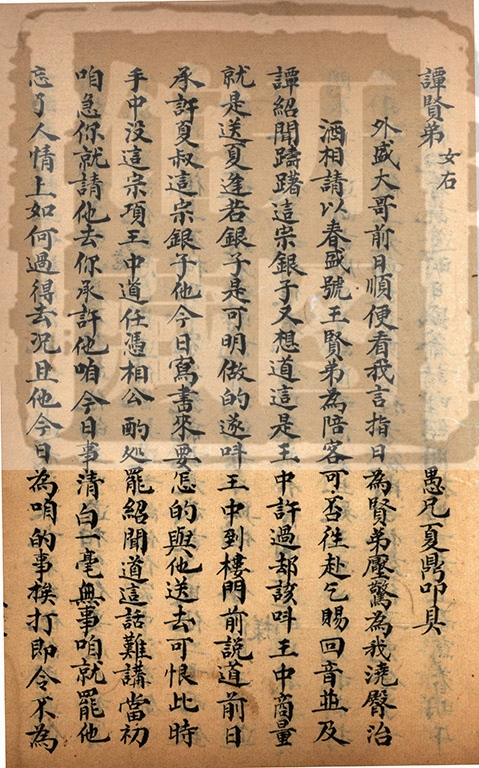 譚賢弟 文右　愚兄夏鼎叩具
外盛大哥前日順便看我言指日為賢弟壓驚為我澆臀治
酒相請以春盛號王賢弟為陪客可否往赴乞賜回音並及
譚紹聞躊躇這宗銀子又想道這是王中許過却該呌王中商量
就是送夏逢若銀子是可明做的遂呌王中到樓門前説道前日
承許夏叔這宗銀子他今日寫書來要怎的與他送去可恨此時
手中没這宗項王中道任憑相公酌処罷紹聞道這話難講當初
咱急你就請他去你承許他咱今日事清白一毫無事咱就罷他
忘了人情上如何過得去况且他今日為咱的事挨打即令不為